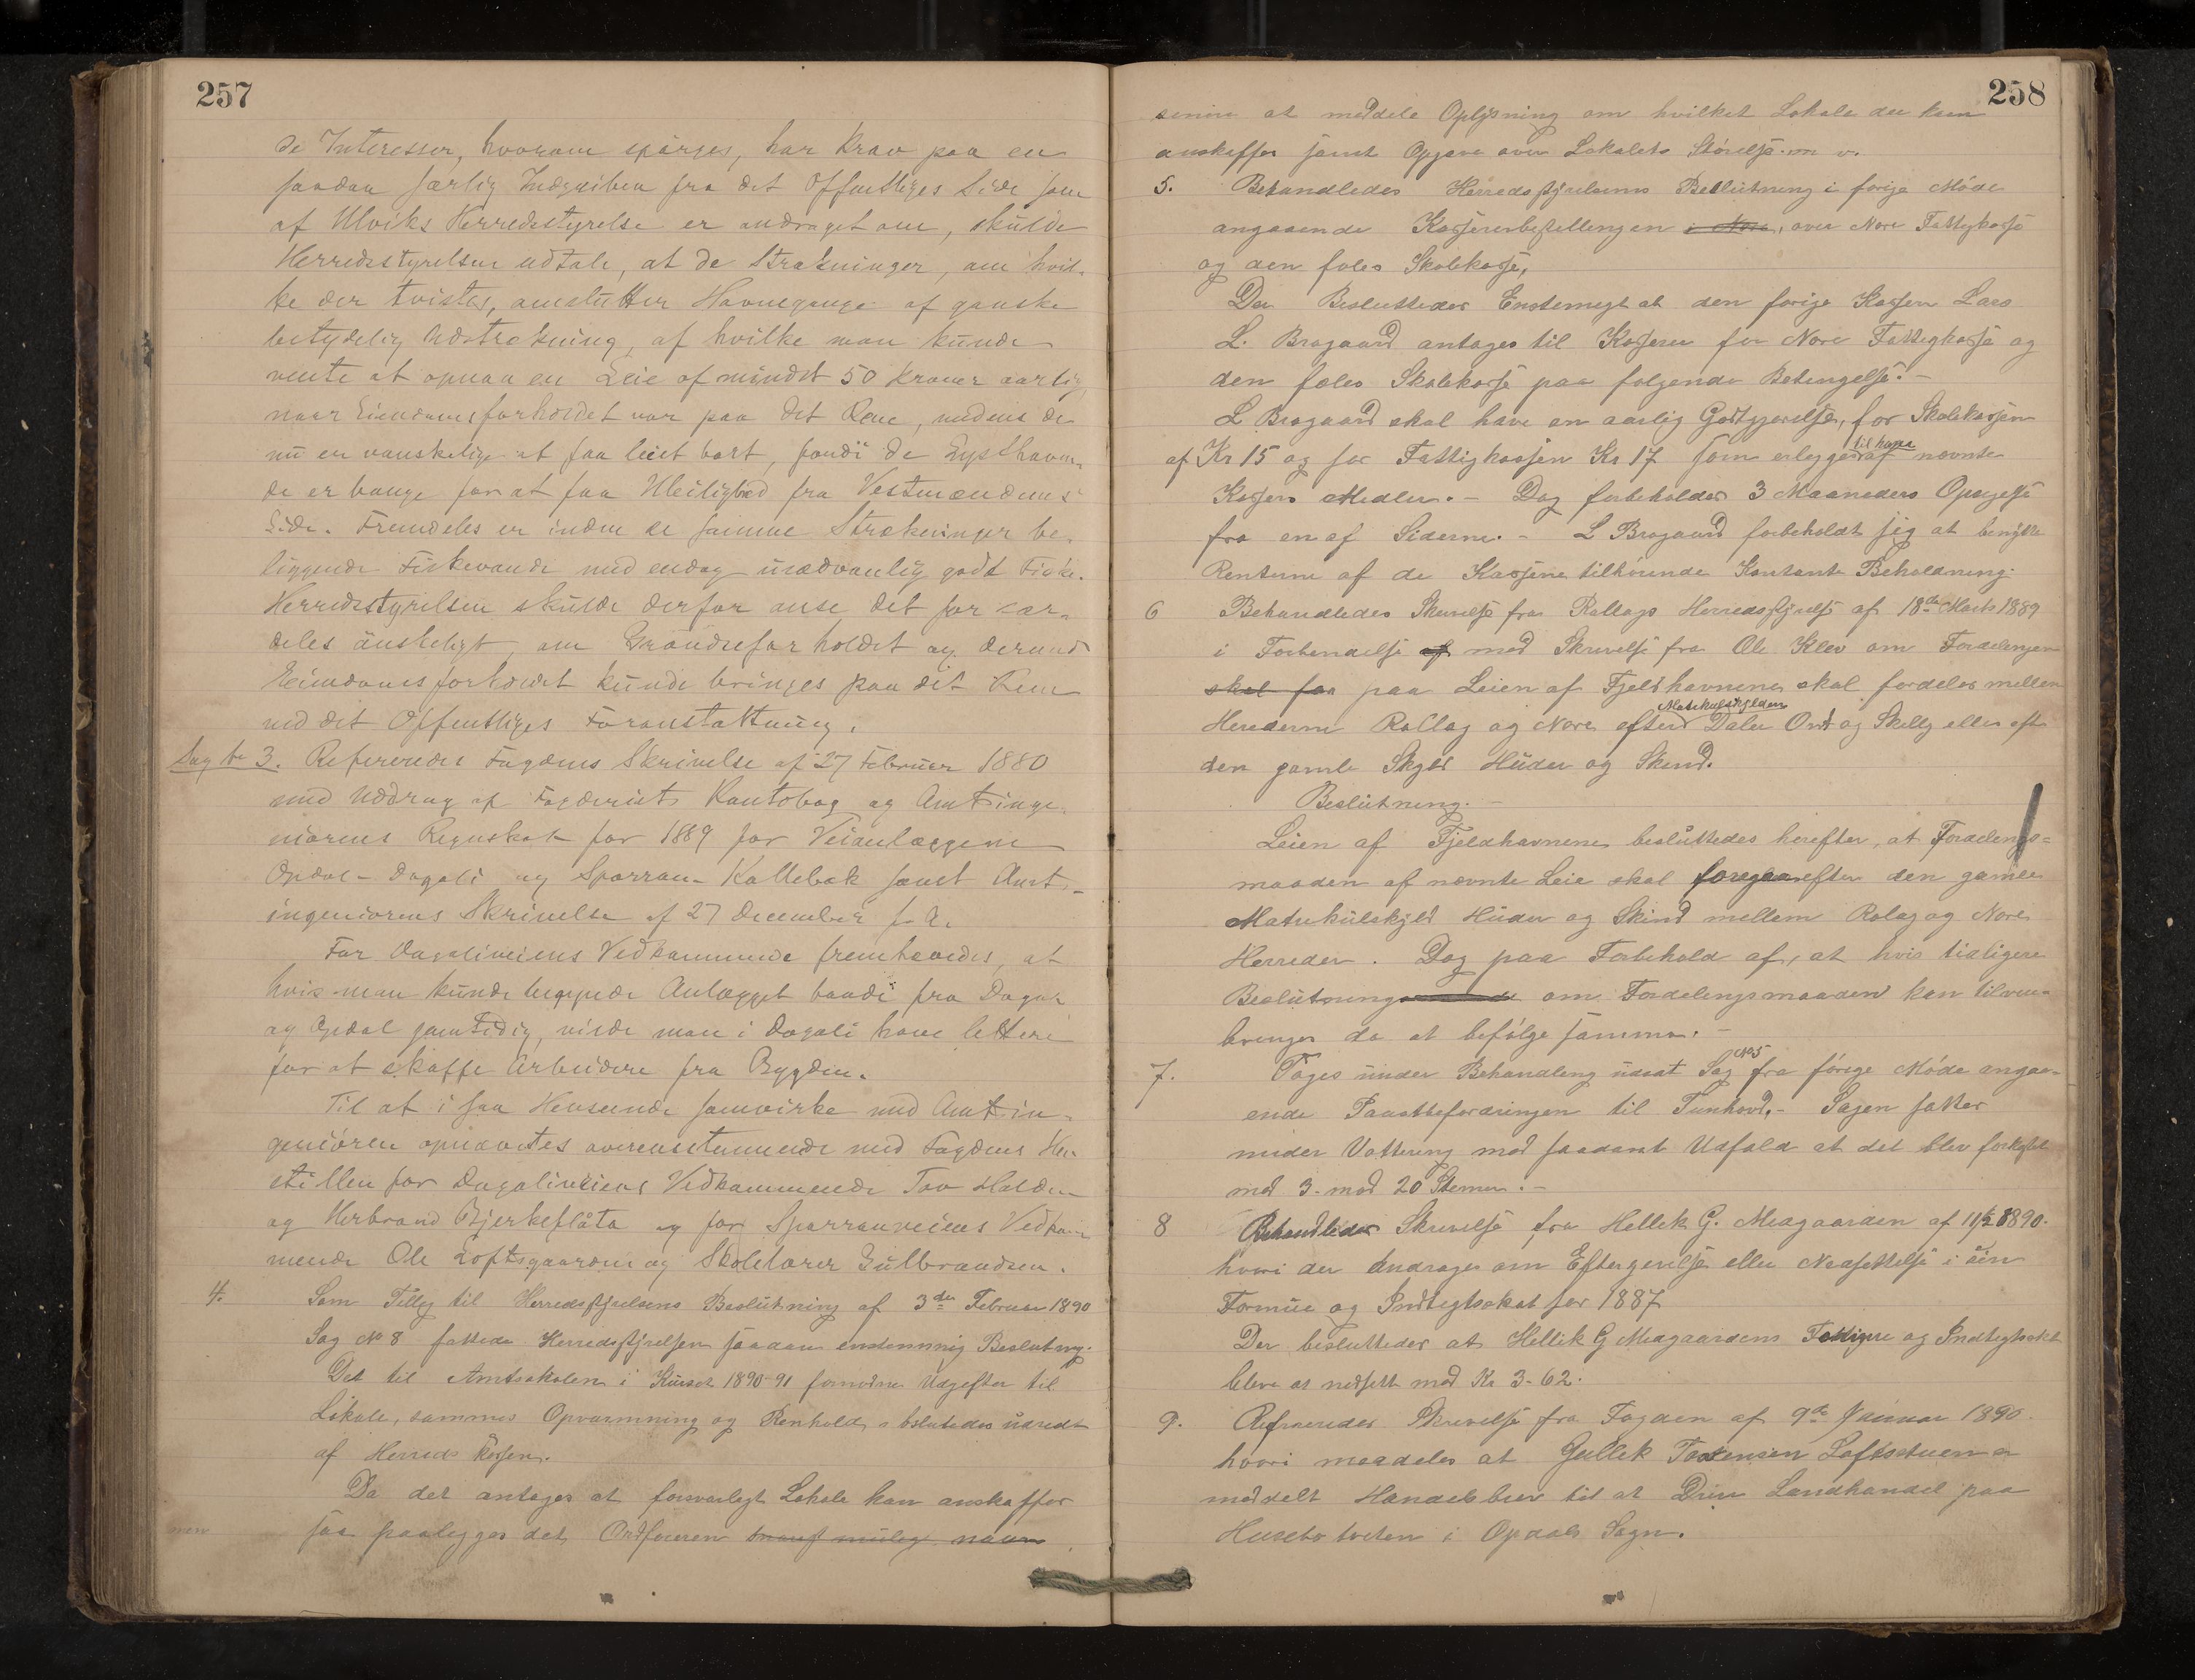 257
de Interesser, hvorom spørges, har Krav paa en
saadan særlig Indgriben fra det Offentliges Side som
af Ulviks Herredsstyrelse er andraget om, skulde
Herredsstyrelsen udtale, at de Strækninger, om hvil-
ke der tvistes, omslutter Havnegange af ganske
betydelig Udstrækning, af hvilke man kunde
vente at opnaa en Leie af mindst 50 Kroner aarlig
naar Eiendomsforholdet var paa det Rene, medens de
nu er vanskelige at faa leiet bort, fordi de Lysthaven-
de er bange for at faa Uleilighed fra Vestmændenes
Side. Fremdeles er inden de samme Strækninger be-
liggende Fiskevande med endog usædvanlig godt Fiske.
Herredsstyrelsen skulde derfor anse det for sær-
deles ønskeligt, om Grændseforholdet og derunder
Eiendomsforholdet kunde bringes paa det Rene
ved det Offentliges Foranstaltning.
Sag No 3. Refereredes Fogdens Skrivelse af 27 Februar 1880
med Uddrag af Fogderiets Kontobog og Amtsinge-
niørens Regnskab for 1889 for Veianlæggene
Opdal-Dagali og Sporran-Kallebæk samt Amts-
ingeniørens Skrivelse af 27 December f. A.
For Dagaliveiens Vedkommende fremhævedes, at
hvis man kunde begynde Anlægget baade fra Dagali
og Opdal samtidig, vilde man i Dagali have lettere
for at skaffe Arbeidere fra Bygden.
Til at i saa Henseende samvirke med Amtsin-
geniøren opnævntes overensstemmende med Fogdens Hen-
stillen for Dagaliveiens Vedkommende Tov Halden
og Herbrand Bjerkeflåta og for Sporranveiens Vedkom-
mende Ole Loftsgaarden og Skolelærer Gulbrandsen.
4. Som Tillæg til Herredsstyrelsens Beslutning af 3die Februar 1890
Sag No 8 fattede Herredsstyrelsen saadan enstemmig Beslutning.
Det til Amtsskolen i Kurset 1890-91 fornødne Udgifter til
Lokale, sammes Opvarmning og Renhold beslutedes udredt
af Herreds Kassen.
Da det antages at forsvarligt Lokale kan anskaffes
saa paalegges det Ordføreren snarest mulig
258
senere at meddele Oplysning om hvilket Lokale der kan
anskaffes samt Opgave over Lokalets Størelse m. v.
5. Behandledes Herredsstyrelsens Beslutning i forige Møde
angaaende Kasserebestellingen i Nore, over Nore Fattigkasse
og den fæles Skolekasse,
Der Besluttedes Enstemigt at den forige Kasser Lars
L. Bragaard antages til Kasserer for Nore Fattigkasse og
den fæles Skolekasse paa følgende Betingelse:-
L Bragaard skal have en aarlig Godtgjørelse, for Skolekassen
af Kr 15 og for Fattigkassen Kr 17 som erlegges til ham af nævnte
Kassers Midler. - Dog forbeholdes 3 Maaneders Opsigelse
fra en af Siderne. - L Bragaard forbeholdt sig at benytte
Renterne af de Kassene tilhørende Kontante Beholdning.
6 Behandledes Skrivelse fra Rollags Herredsstyrelse af 18de Marts 1889
i Forbindelse af med Skrivelse fra Ole Klev om Fordelingen
skal faa paa Leien af Fjeldhavnene skal fordeles mellem
Herederne Rollag og Nore efter Matrikulskylden Daler Ort og Skilling eller efter
den gamle Skyld Huder og Skind.
Beslutning. -
Leien af Fjeldhavnene besluttedes herefter, at Fordelings=
maaden af nævnte Leie skal foregaa efter den gamle
Matrikulskyld Huder og Skind mellem Rolag og Nore
Herreder. Dog paa Forbehold af, at hvis tidligere
Beslutning om Fordelingsmaaden kan tilveie-
bringes da at befølge samme. -
7. Toges under Behandling udsat Sag No 5 fra forige Møde angaa-
ende Paastbefordringen til Tunhovd. - Sagen sattes
under Vottering med saadant Udfald at det blev forkastet
med 3 mod 20 Stemer. -
8 Behandledes Skrivelse fra Hellik G. Midgaarden af 11/2 1890.
hvori der Andrages om Eftergivelse eller Nedsettelse i sin
Formue og Indtegtsskat for 1887
Der besluttedes at Hellik G Midgaardens Formue og Indtegtsskat
bleve at nedsett med Kr 3-62.
9. Refereredes Skrivelse fra Fogden af 9de Januar 1890.
hvori meddeles at Gullik Torstensen Loftsstuen er
meddelt Handelsbrev til at Drive Landhandel paa
Husebotveten i Opdals Sogn.